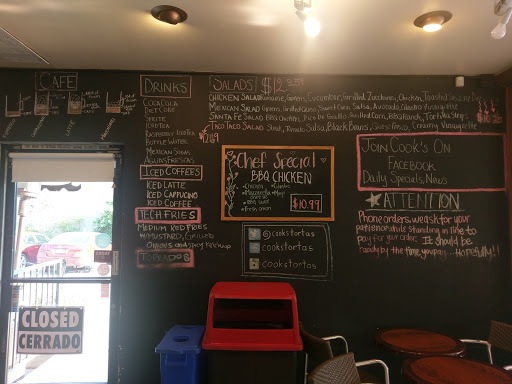 CAFE
LATTE
DRINKS
COCA COLA
DIET COKE
SPRITE
ICED TEA
RASPBERRY ICED TEA
BOTTLE WATER
MEXICAN SODAS
AGUAS FRESCAS
ICED COFFEES
ICED LATTE
ICED CAPPUCINO
ICED COFFEE
TECH FRIES
MEDIUM ICED FRIES
W/MUSTARD, GRILLED
ONIONS AND SPICY KETCHUP
SALADS
CHICKEN SALAD Romaine, Greens, Cucumber, Grilled Zucchini, Chicken, Toasted
MEXICAN SALAD Greens, Grilled Queso, Sweet Corn, Salsa, Avocado, Cilantro Vinaigrette
SANTA FE SALAD BBQ Chicken, Pico De Gallo, Grilled Corn, BBQ Ranch, Tortilla Strips
TACO SALAD Steak, Tomato Salsa, Black Beans, Queso Fresco, Creamy Vinaigrette
Chef Special
BBQ CHICKEN
• Chicken
• Mozzarella
• BBQ sauce
• Fresh onion
• Cilantro
• Mayo
$10.99
@cookstortas
cookstortas
cookstortas
JOIN COOK'S ON
FACEBOOK
Daily Specials, News
ATTENTION
Phone orders, we ask for your
patience while standing in line to
pay for your order. It should be
ready by the time you pay. Hopefully!!
CLOSED
CERRADO